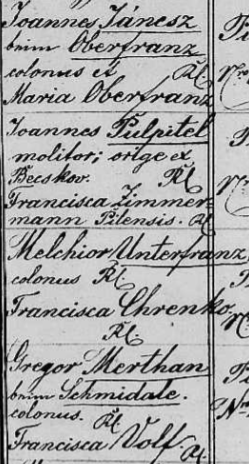 Joannes Jáncsz
beim Oberfranz
colonus et Rk
Maria Oberfranz
Joannes Pulpitel
molitor; orige ex
Becskov. Rk
Francisca Zimmer-
mann Pilensis. Rk
Melchior Unterfranz
colonus Rk
Francisca Chrenko,
Rk
Gregor Merthan
beim Schmidale.
colonus. Rk
Francisca Volf Rk